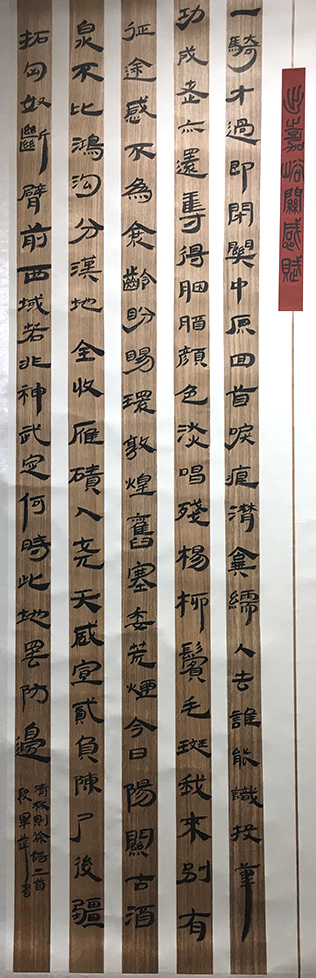 出嘉峪關感賦
一騎才過即閉關中原回首淚痕潸棄繻人去誰能識投筆
功成老亦還奪得胭脂顏色淡唱殘楊柳鬢毛斑我來別有
征途感不為衰齡盼賜環敦煌舊塞委荒煙今日陽關古酒
泉不比鴻溝分漢地全收雁磧入堯天威宣貳負陳尸後疆
拓匈奴斷臂前西域若非神武定何時此地罷防邊
清林則徐詩二首
段軍書